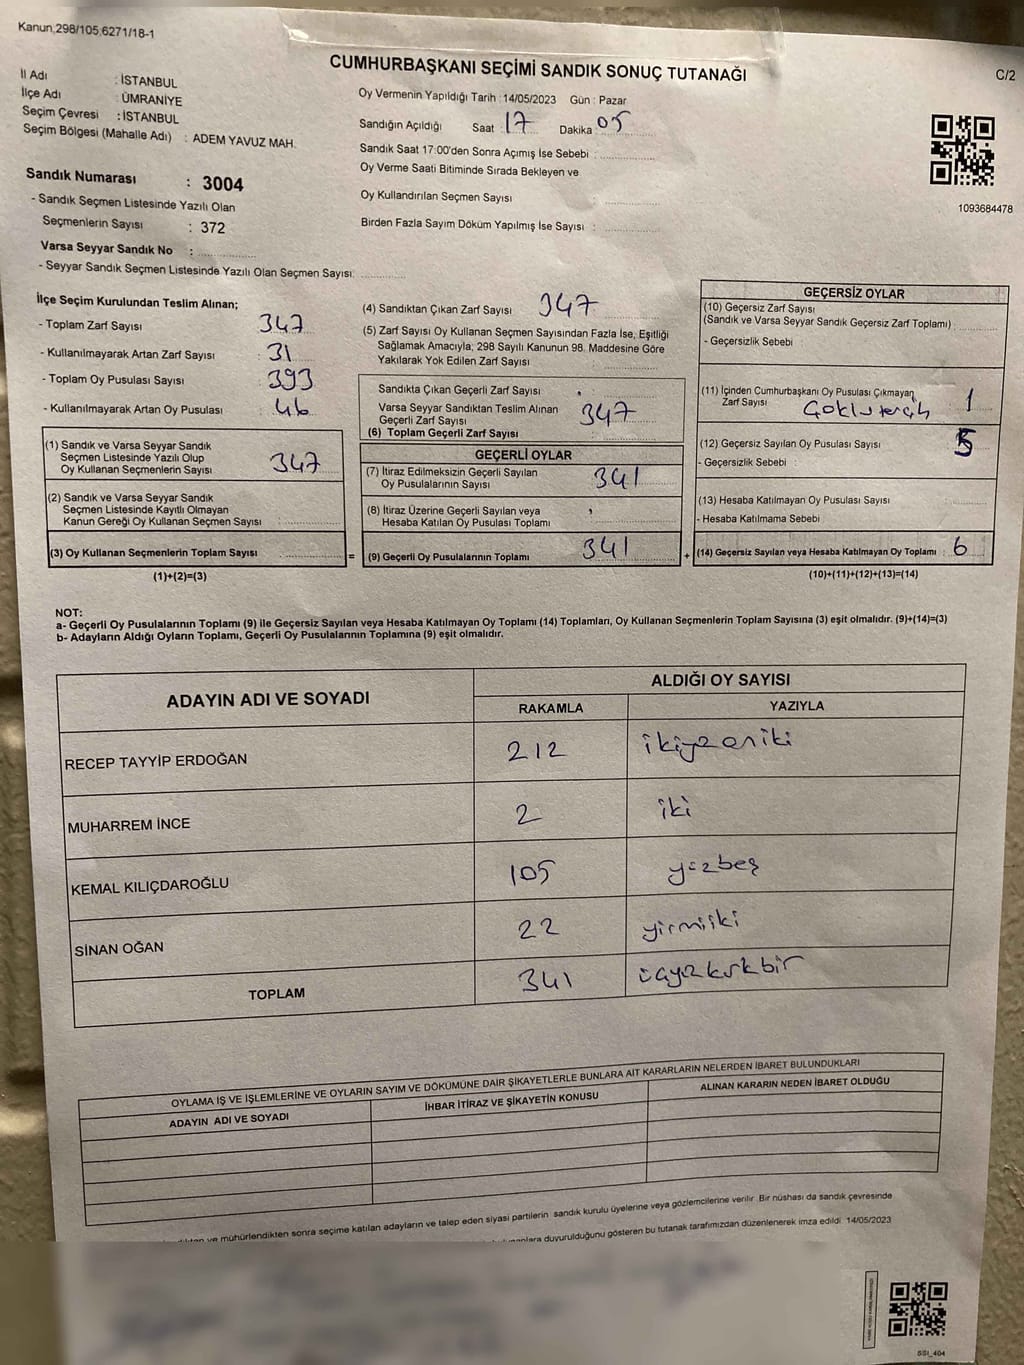 Kanun,298/105,6271/18-1
CUMHURBAŞKANI SEÇİMİ SANDIK SONUÇ TUTANAĞI
C/2
İl Adı : İSTANBUL
İlçe Adı : ÜMRANİYE
Seçim Çevresi : İSTANBUL
Seçim Bölgesi (Mahalle Adı) : ADEM YAVUZ MAH.
Sandık Numarası : 3004
- Sandık Seçmen Listesinde Yazılı Olan
Seçmenlerin Sayısı : 372
Varsa Seyyar Sandık No :
- Seyyar Sandık Seçmen Listesinde Yazılı Olan Seçmen Sayısı:
Oy Vermenin Yapıldığı Tarih : 14/05/2023 Gün : Pazar
Sandığın Açıldığı Saat : 17 Dakika : 05
Sandık Saat 17:00'den Sonra Açımış İse Sebebi :
Oy Verme Saati Bitiminde Sırada Bekleyen ve
Oy Kullandırılan Seçmen Sayısı :
Birden Fazla Sayım Döküm Yapılmış İse Sayısı :
1093684478
İlçe Seçim Kurulundan Teslim Alınan;
- Toplam Zarf Sayısı : 347
- Kullanılmayarak Artan Zarf Sayısı : 31
- Toplam Oy Pusulası Sayısı : 393
- Kullanılmayarak Artan Oy Pusulası : 46
(1) Sandık ve Varsa Seyyar Sandık
Seçmen Listesinde Yazılı Olup
Oy Kullanan Seçmenlerin Sayısı : 347
(2) Sandık ve Varsa Seyyar Sandık
Seçmen Listesinde Kayıtlı Olmayan
Kanun Gereği Oy Kullanan Seçmen Sayısı :
(3) Oy Kullanan Seçmenlerin Toplam Sayısı :
(1)+(2)=(3)
(4) Sandıktan Çıkan Zarf Sayısı : 347
(5) Zarf Sayısı Oy Kullanan Seçmen Sayısından Fazla İse, Eşitliği
Sağlamak Amacıyla; 298 Sayılı Kanunun 98. Maddesine Göre
Yakılarak Yok Edilen Zarf Sayısı :
Sandıkta Çıkan Geçerli Zarf Sayısı :
Varsa Seyyar Sandıktan Teslim Alınan
Geçerli Zarf Sayısı : 347
(6) Toplam Geçerli Zarf Sayısı :
GEÇERLİ OYLAR
(7) İtiraz Edilmeksizin Geçerli Sayılan
Oy Pusulalarının Sayısı : 341
(8) İtiraz Üzerine Geçerli Sayılan veya
Hesaba Katılan Oy Pusulası Toplamı :
= (9) Geçerli Oy Pusulalarının Toplamı : 341
GEÇERSİZ OYLAR
(10) Geçersiz Zarf Sayısı
(Sandık ve Varsa Seyyar Sandık Geçersiz Zarf Toplamı) :
- Geçersizlik Sebebi :
(11) İçinden Cumhurbaşkanı Oy Pusulası Çıkmayan
Zarf Sayısı : 1
(12) Geçersiz Sayılan Oy Pusulası Sayısı : 5
- Geçersizlik Sebebi :
(13) Hesaba Katılmayan Oy Pusulası Sayısı :
- Hesaba Katılmama Sebebi :
+ (14) Geçersiz Sayılan veya Hesaba Katılmayan Oy Toplamı : 6
(10)+(11)+(12)+(13)=(14)
NOT:
a- Geçerli Oy Pusulalarının Toplamı (9) ile Geçersiz Sayılan veya Hesaba Katılmayan Oy Toplamı (14) Toplamları, Oy Kullanan Seçmenlerin Toplam Sayısına (3) eşit olmalıdır. (9)+(14)=(3)
b- Adayların Aldığı Oyların Toplamı, Geçerli Oy Pusulalarının Toplamına (9) eşit olmalıdır.
ADAYIN ADI VE SOYADI ALDIĞI OY SAYISI
RAKAMLA YAZIYLA
RECEP TAYYİP ERDOĞAN 212 ikiyüzoniki
MUHARREM İNCE 2 iki
KEMAL KILIÇDAROĞLU 105 yüzbeş
SİNAN OĞAN 22 yirmiiki
TOPLAM 341 üçyüzkırkbir
OYLAMA İŞ VE İŞLEMLERİNE VE OYLARIN SAYIM VE DÖKÜMÜNE DAİR ŞİKAYETLERLE BUNLARA AİT KARARLARIN NELERDEN İBARET BULUNDUKLARI
ADAYIN ADI VE SOYADI İHBAR İTİRAZ VE ŞİKAYETİN KONUSU ALINAN KARARIN NEDEN İBARET OLDUĞU
ve mühürlendikten sonra seçime katılan adayların ve talep eden siyasi partilerin sandık kurulu üyelerine veya gözlemcilerine verilir. Bir nüshası da sandık çevresinde
duyurulduğunu gösteren bu tutanak tarafımızdan düzenlenerek imza edildi. 14/05/2023
SSI_404